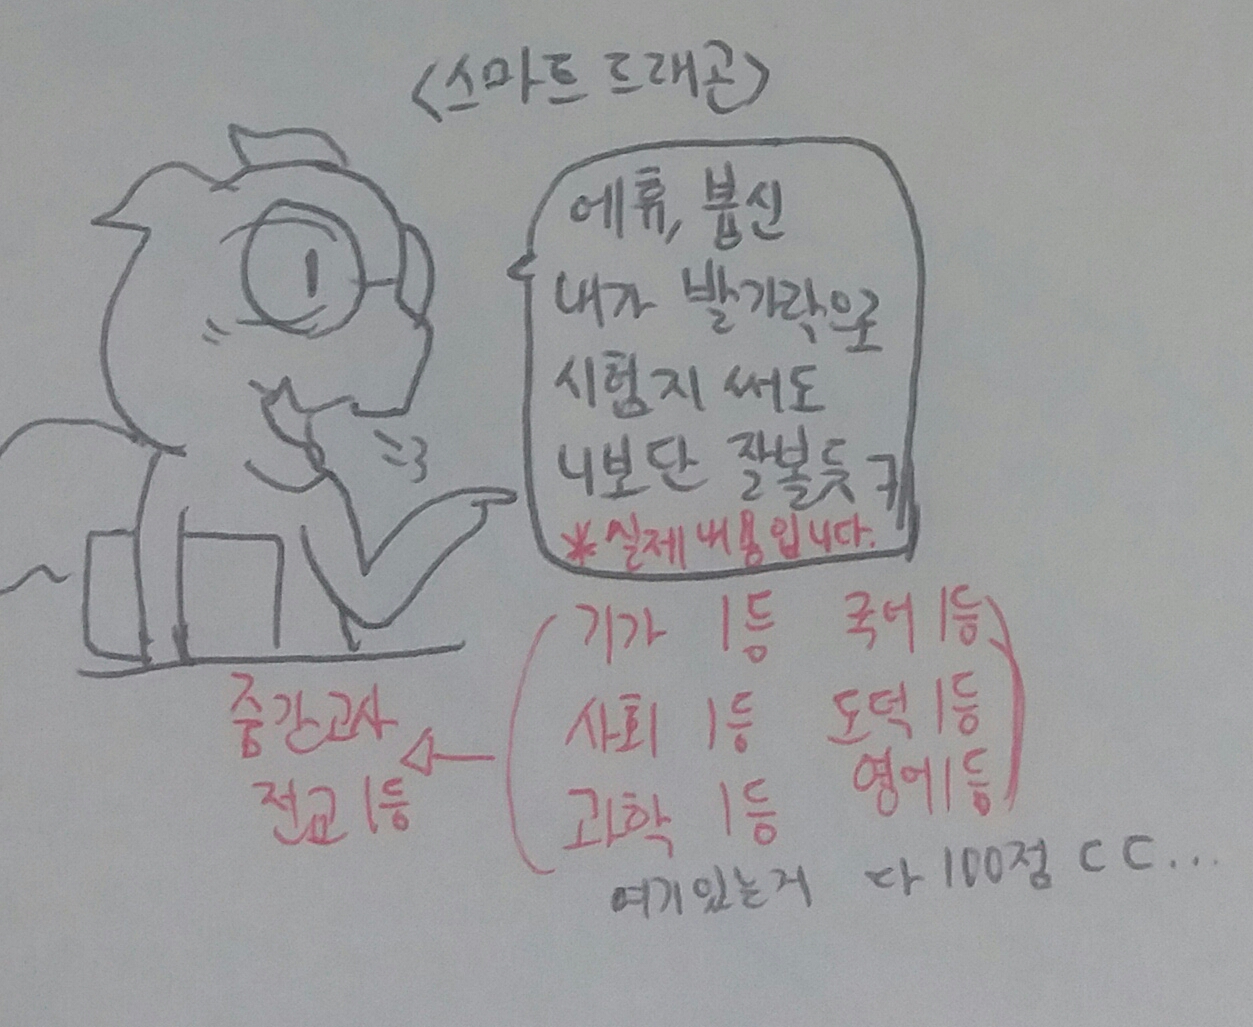 <스마트 드래곤>
에휴, 븝신
내가 발가락으로
시험지 써도
니보단 잘볼듯 ㅋ
*실제 내용입니다.
기가 1등 국어 1등
사회 1등 도덕 1등
과학 1등 영어 1등
중간고사
전교 1등
여기있는거 다 100점 ㄷㄷ...